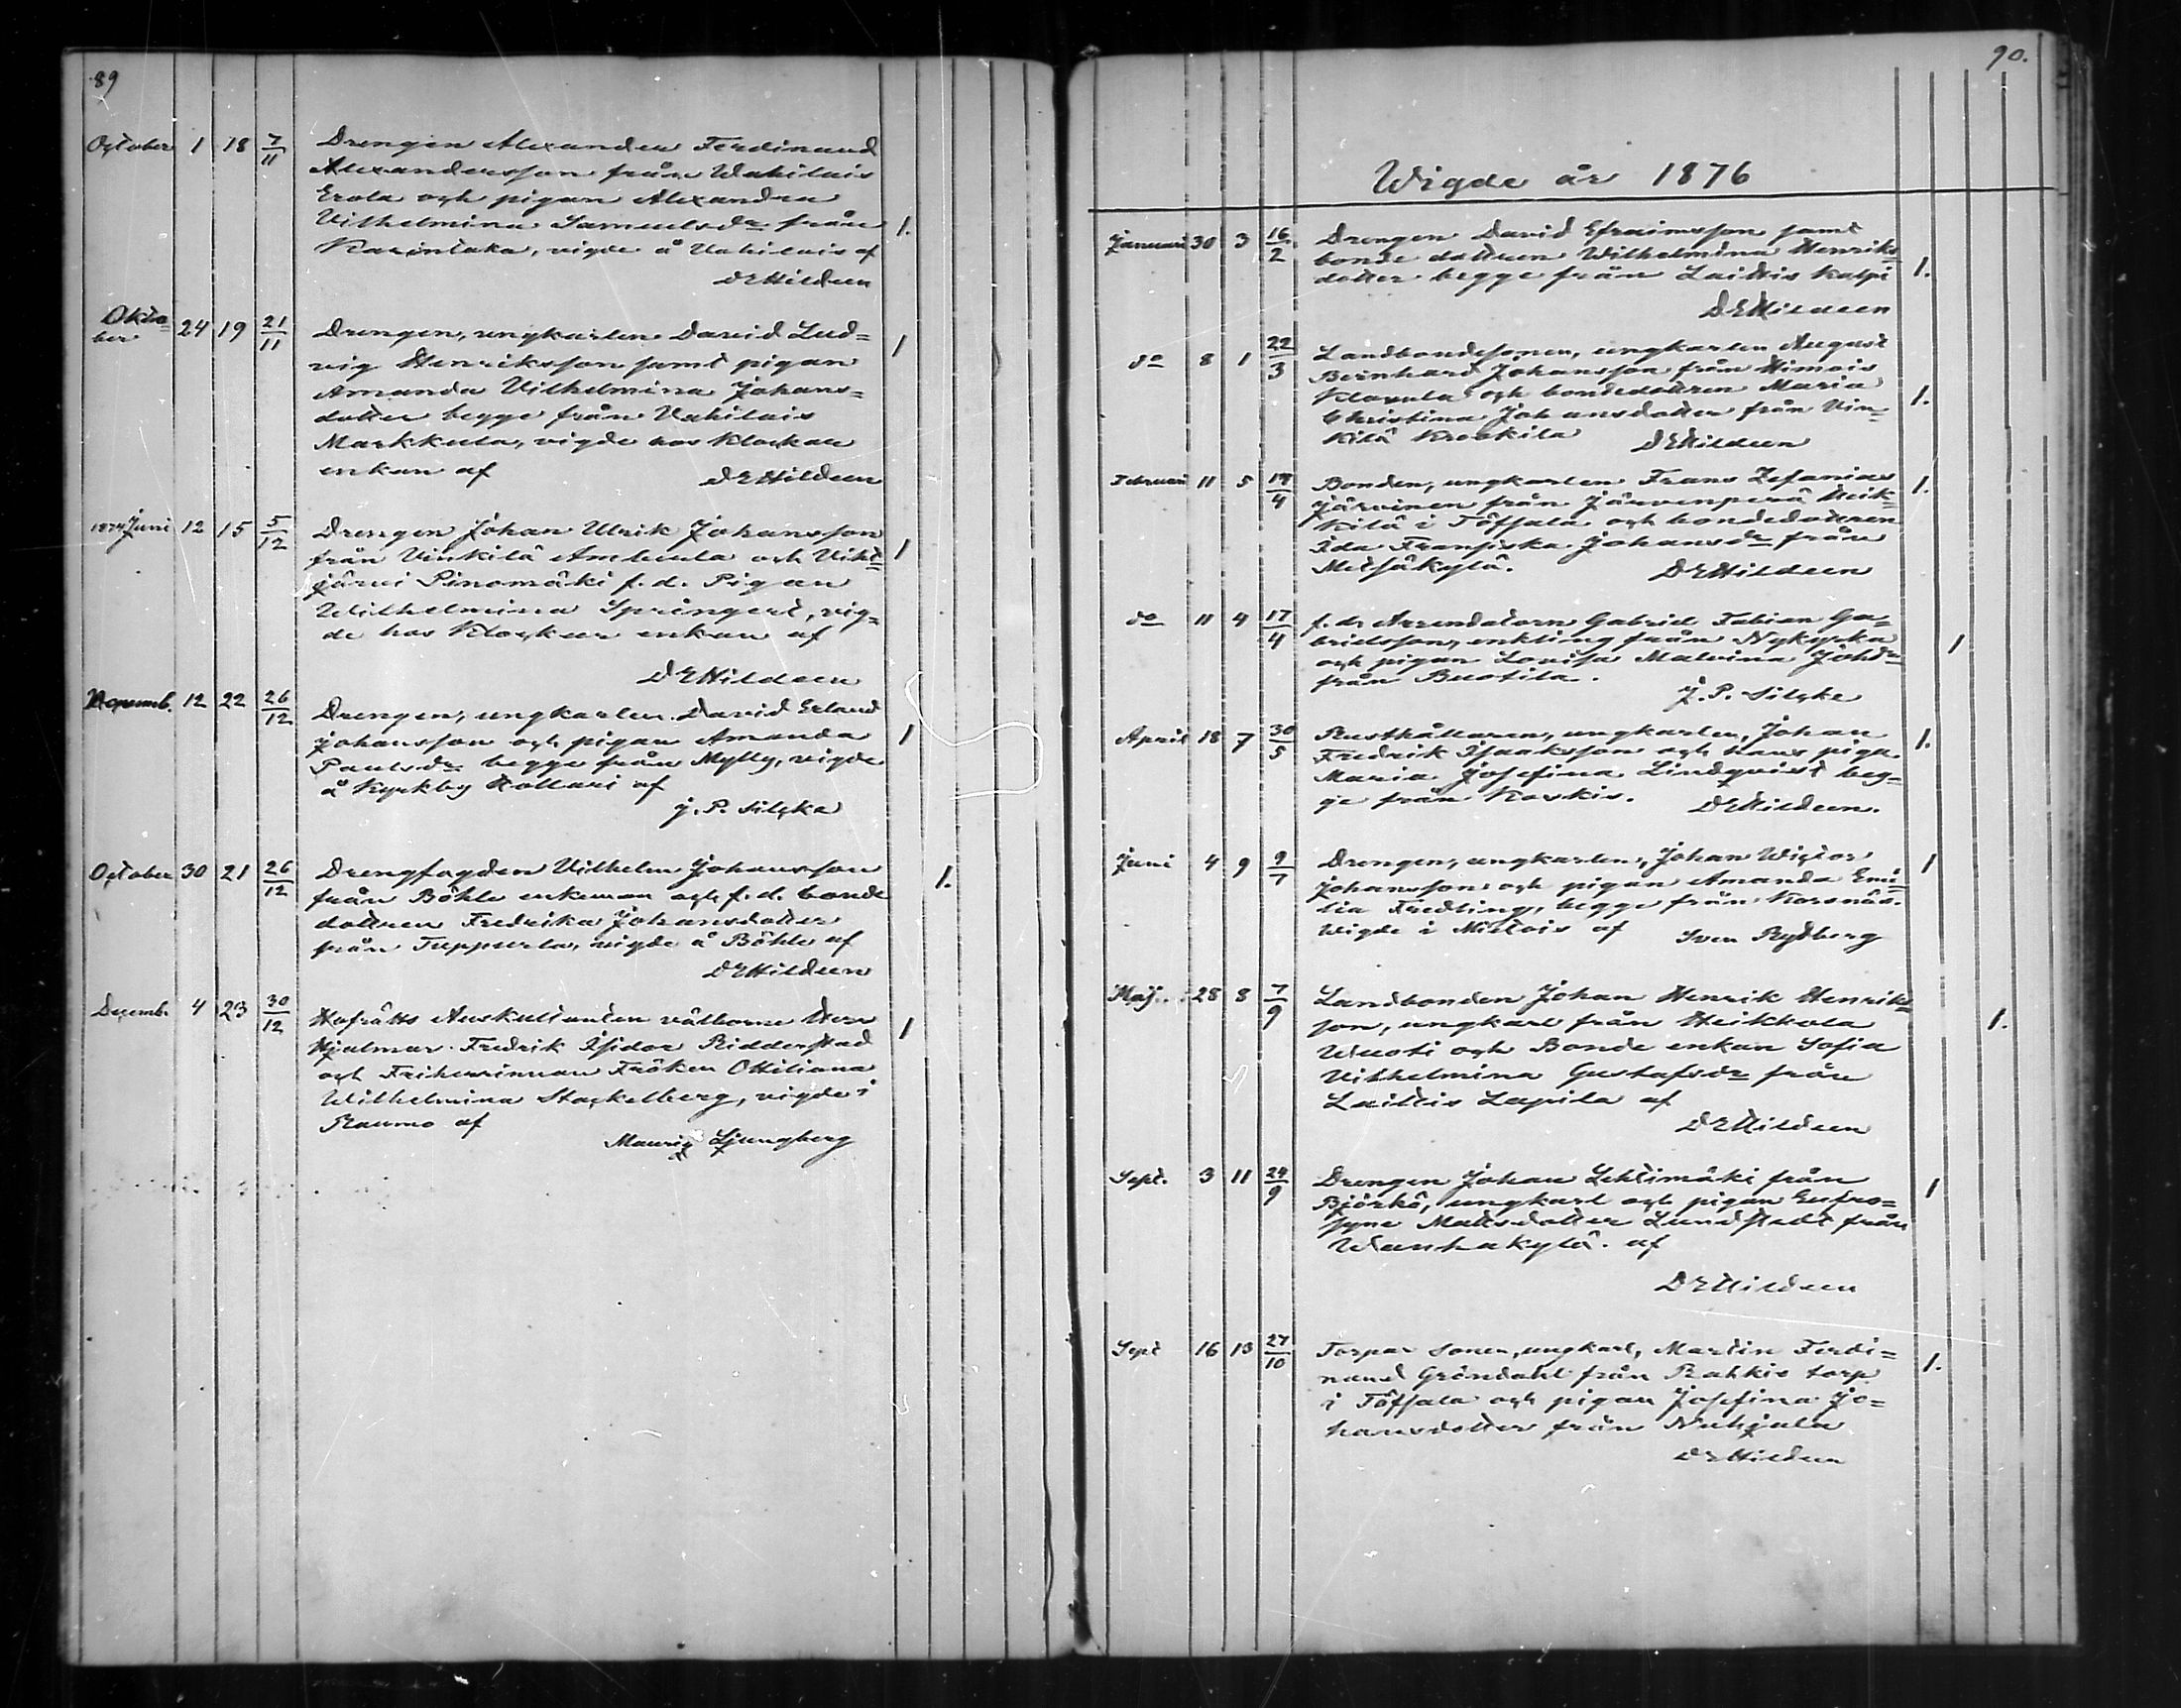 89
October 1 18 7/11 Drengen Alexander Ferdinand
Alexandersson från Wahilais
Erola och pigan Alexandra
Vilhelmina Samuelsdr från 1.
Karintaka, vigde å Vahilais af
DEHildeen
Okto=
ber 24 19 21/11 Drengen, ungkarlen David Lud=
vig Henriksson samt pigan 1
Amanda Vilhelmina Johans=
dotter begge från Vahilais
Markkula, vigde hos Klockar
enkan af DEHildeen
1874 Juni 12 15 5/12 Drengen Johan Ulrik Johansson
från Vinkilä Ambuula och Vihi= 1
järvi Pinomäki f.d. Pigan
Wilhelmina Springert, vig=
de hos Klockar enkan af
DEHildeen
Novemb. 12 22 26/12 Drengen, ungkarlen David Erland
Johansson och pigan Amanda 1
Paulsdr begge från Mylly, vigde
å Kyrkby Kollari af
J. P. Silcke
October 30 21 26/12 Drengfogden Vilhelm Johansson
från Böhle enkeman och f.d. bonde 1.
dottren Fredrika Johansdotter
från Tuppurla, vigde å Böhle af
DEHildeen
Decemb. 4 23 30/12 Hofrätts Auskultanten välborne Herr
Hjalmar Fredrik Isidor Ridderstad 1
och Friherrinnan Fröken Ottiliana
Wilhelmina Stackelberg, vigde i
Raumo af
Mauritz Ljungberg
90.
Wigde år 1876
Januari 30 3 16/2 Drengen David Efraimsson samt
bonde dottren Wilhelmina Henriks=
dotter begge från Laittis Kalpi 1.
DEHildeen
do 8 1 22/3 Landbondesonen, ungkarlen August
Bernhard Johansson från Himois
Klaavula och bondedottren Maria 1.
Christina Johansdotter från Vin=
kilä Kreekilä DEHildeen
Februari 11 5 17/4 Bonden, ungkarlen Frans Zefanias 1.
Järvinen från Järvenperä Heik=
kilä i Töfsala och bondedottren
Ida Fransiska Johansdr från
Metsäkylä. DEHildeen
do 11 4 17/4 f.d. Arrendatorn Gabriel Fabian Ga=
brielsson, enkling från Nykyrka 1
och pigan Lovisa Malvina Johdr
från Buotila.
J. P. Silcke
April 18 7 30/5 Rusthållaren, ungkarlen, Johan 1.
Fredrik Isaaksson och hans piga
Maria Josefina Lindqvist beg=
ge från Koskis. DEHildeen.
Juni 4 9 9/7 Drengen, ungkarlen, Johan Wictor 1
Johansson och pigan Amanda Emi=
lia Fredling, begge från Korsnäs.
Wigde i Mietois af Sven Rydberg
Maj 28 8 7/9 Landbonden Johan Henrik Henriks=
son, ungkarl från Heikkola 1.
Wuoti och Bonde enkan Sofia
Vilhelmina Gustafsdr från
Laittis Lapila af
DEHildeen
Sept. 3 11 24/9 Drengen Johan Lehtimäki från
Björkö, ungkarl och pigan Eufro= 1
syne Mattsdotter Lundstedt från
Wanhakylä. af
DEHildeen
Sept 16 13 27/10 Torpar sonen, ungkarl, Martin Ferdi=
nand Gröndahl från Rahkis torp 1.
i Töfsala och pigan Josefina Jo=
hansdotter från Nuhjala
DEHildeen